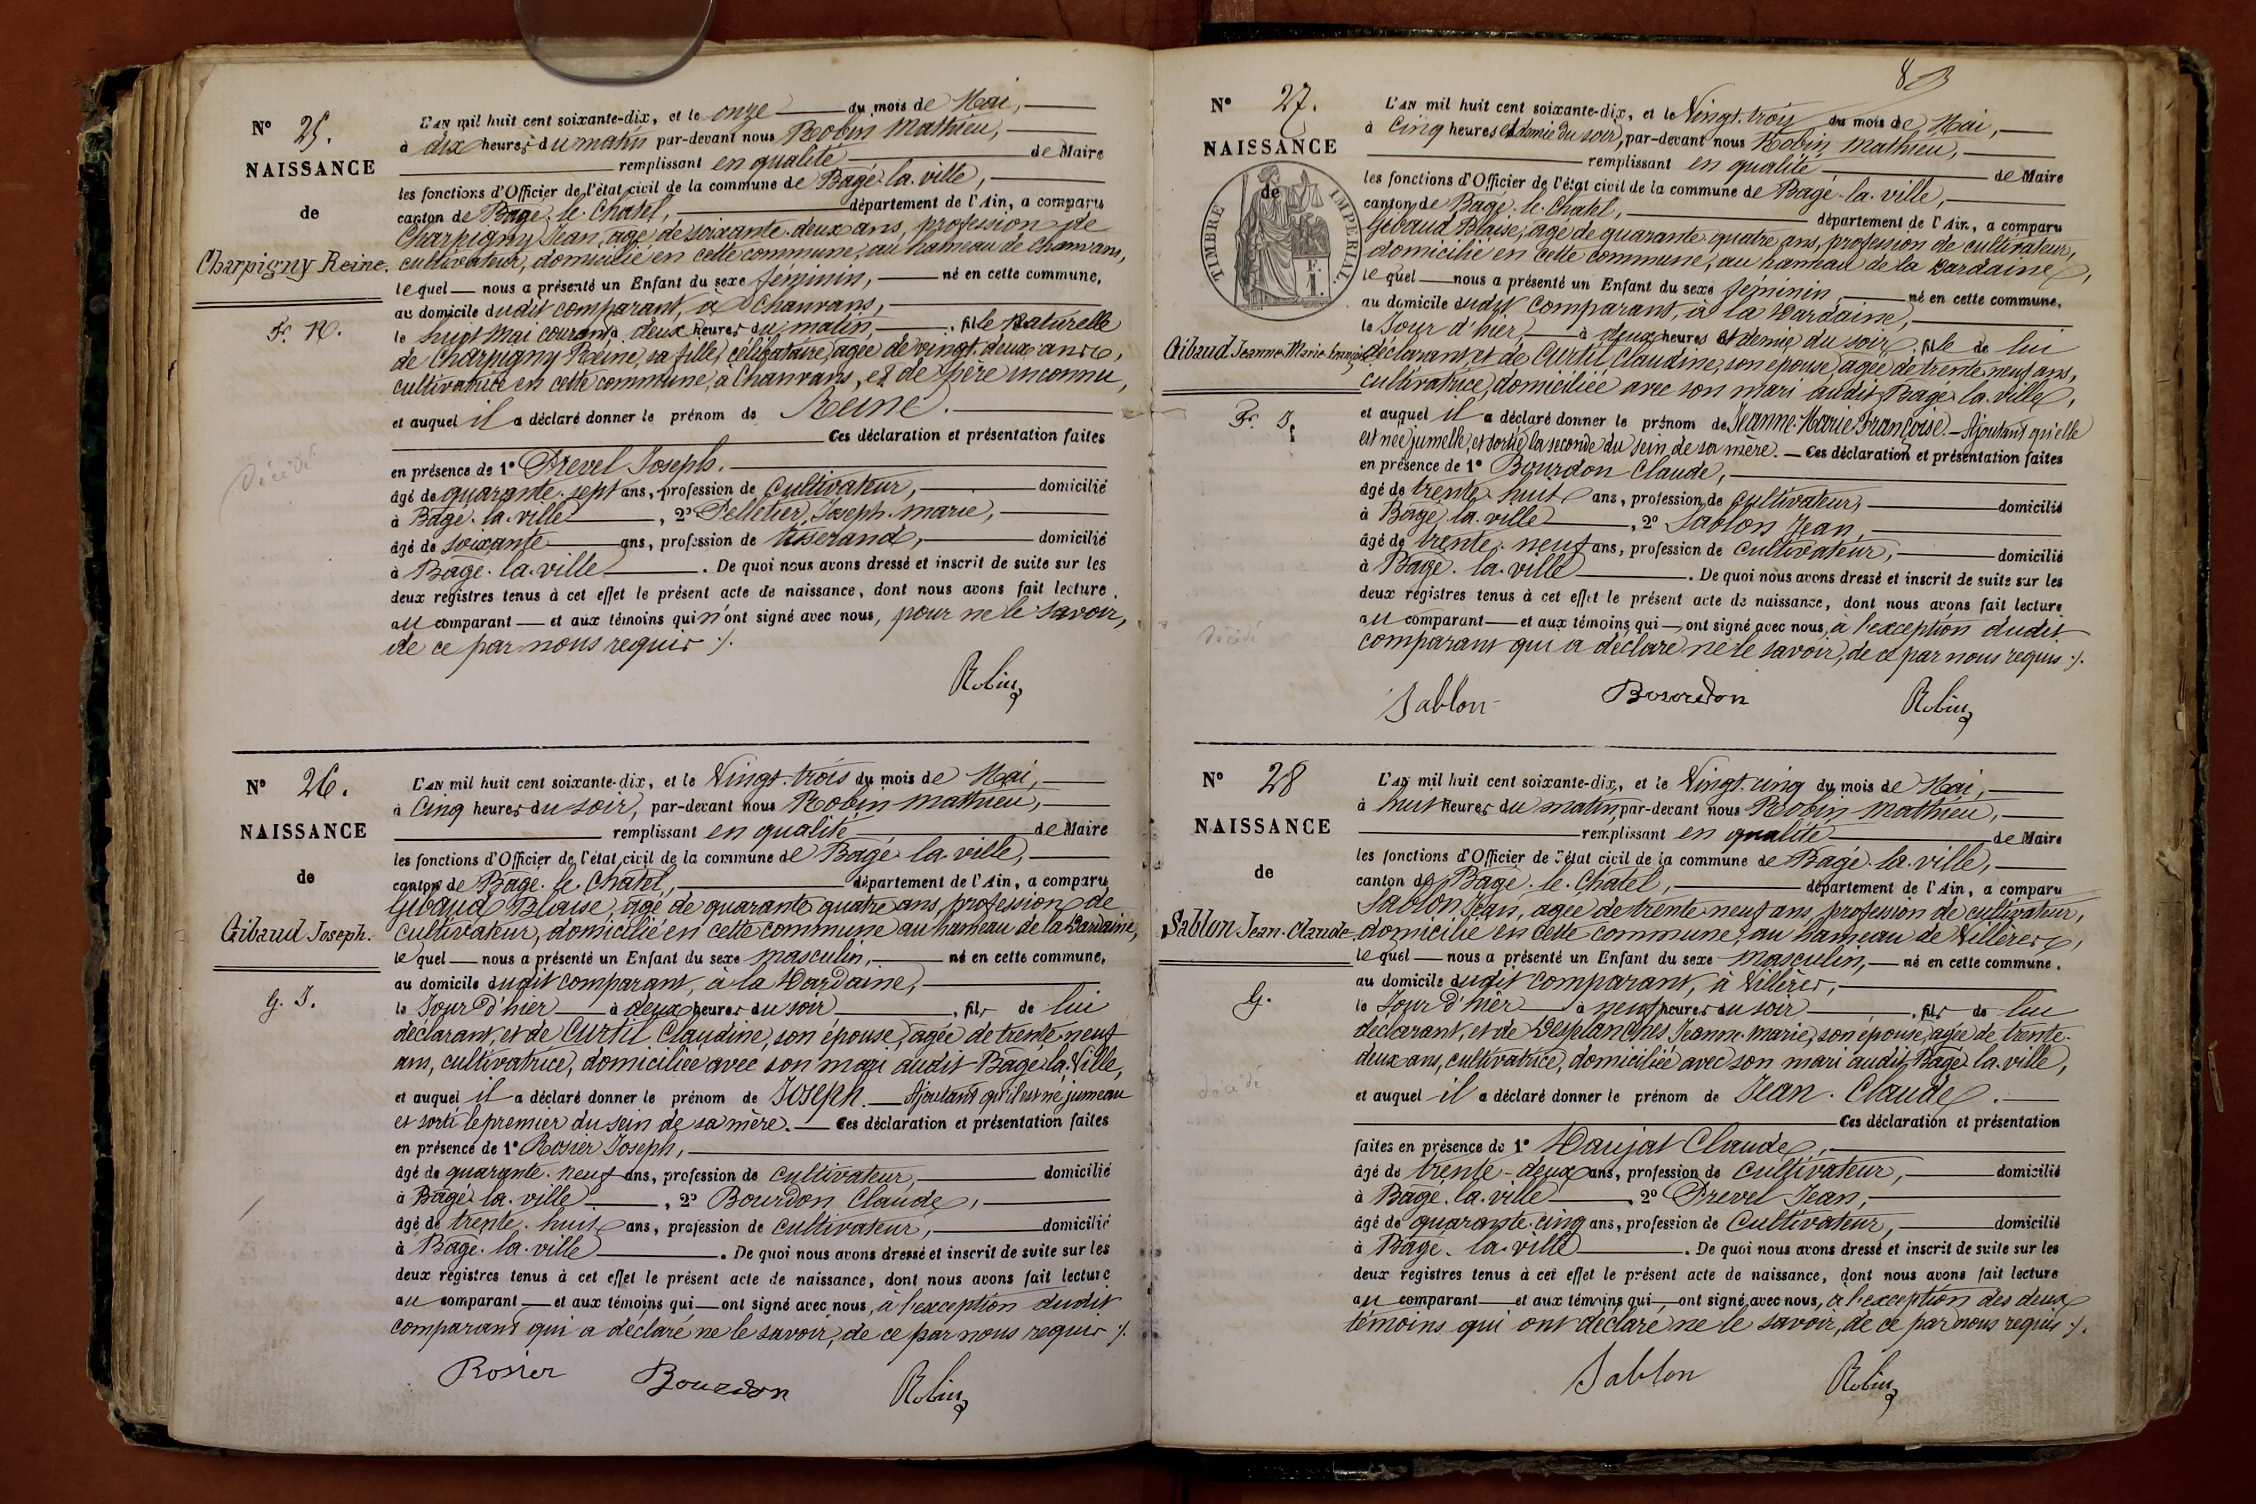 N° 25.
NAISSANCE
de
Charpigny Reine.
F. N.
Décédé
L'AN mil huit cent soixante-dix, et le onze du mois de Mai,
à dix heures du matin par-devant nous Robin Mathieu,
remplissant en qualité de Maire
les fonctions d'Officier de l'état civil de la commune de Bagé-la-ville,
canton de Bagé-le-Chatel, département de l'Ain, a comparu
Charpigny Jean, agé de soixante-deux ans, profession de
cultivateur, domicilié en cette commune, au hameau de Chanvans,
lequel nous a présenté un Enfant du sexe féminin, né en cette commune,
au domicile dudit comparant, à Chanvans,
le huit Mai courant à deux heures du matin, fille Naturelle
de Charpigny Reine, sa fille, célibataire, agée de vingt-deux ans,
cultivatrice en cette commune, à Chanvans, et de père inconnu,
et auquel il a déclaré donner le prénom de Reine.
Ces déclaration et présentation faites
en présence de 1° Prevel Joseph.
âgé de quarante-sept ans, profession de cultivateur, domicilié
à Bagé-la-ville, 2° Pelletier, Joseph-marie,
âgé de soixante ans, profession de tisserand, domicilié
à Bagé-la-ville. De quoi nous avons dressé et inscrit de suite sur les
deux registres tenus à cet effet le présent acte de naissance, dont nous avons fait lecture
au comparant et aux témoins qui n'ont signé avec nous, pour ne le savoir,
de ce par nous requis ./.
Robin
N° 26.
NAISSANCE
de
Gibaud Joseph.
G. J.
L'AN mil huit cent soixante-dix, et le Vingt-trois du mois de Mai,
à Cinq heures du soir, par-devant nous Robin Mathieu,
remplissant en qualité de Maire
les fonctions d'Officier de l'état civil de la commune de Bagé-la-ville,
canton de Bagé-le-Chatel, département de l'Ain, a comparu
Gibaud Blaise, agé de quarante-quatre ans, profession de
cultivateur, domicilié en cette commune au hameau de la Dardaine,
lequel nous a présenté un Enfant du sexe masculin, né en cette commune,
au domicile dudit comparant, à la Dardaine,
le Jour d'hier à deux heures du soir, fils de lui
déclarant, et de Curtil Claudine, son épouse, agée de trente-neuf
ans, cultivatrice, domiciliée avec son mari audit Bagé-la-Ville,
et auquel il a déclaré donner le prénom de Joseph. Ajoutant qu'il est né jumeau
et sorti le premier du sein de sa mère. Ces déclaration et présentation faites
en présence de 1° Rosier Joseph,
âgé de quarante-neuf ans, profession de cultivateur, domicilié
à Bagé-la-ville, 2° Bourdon Claude,
âgé de trente-huit ans, profession de cultivateur, domicilié
à Bagé-la-ville. De quoi nous avons dressé et inscrit de suite sur les
deux registres tenus à cet effet le présent acte de naissance, dont nous avons fait lecture
au comparant et aux témoins qui ont signé avec nous, à l'exception dudit
comparant qui a déclaré ne le savoir, de ce par nous requis ./.
Rosier Bourdon Robin
83
N° 27.
NAISSANCE
de
TIMBRE IMPÉRIAL.
Gibaud Jeanne-Marie-françoise
F. J.
Décédé
L'AN mil huit cent soixante-dix, et le Vingt-trois du mois de Mai,
à Cinq heures et demie du soir, par-devant nous Robin Mathieu,
remplissant en qualité de Maire
les fonctions d'Officier de l'état civil de la commune de Bagé-la-ville,
canton de Bagé-le-Chatel, département de l'Ain, a comparu
Gibaud Blaise, agé de quarante-quatre ans, profession de cultivateur,
domicilié en cette commune, au hameau de la Dardaine,
lequel nous a présenté un Enfant du sexe féminin, né en cette commune,
au domicile dudit comparant, à la Dardaine,
le Jour d'hier à deux heures et demie du soir, fille de lui
déclarant, et de Curtil Claudine, son épouse, agée de trente-neuf ans,
cultivatrice, domiciliée avec son mari audit Bagé-la-ville,
et auquel il a déclaré donner le prénom de Jeanne-Marie-Françoise. Ajoutant qu'elle
est née jumelle, et sortie la seconde du sein de sa mère. Ces déclaration et présentation faites
en présence de 1° Bourdon Claude,
âgé de trente-huit ans, profession de cultivateur, domicilié
à Bagé-la-ville, 2° Sablon Jean,
âgé de trente-neuf ans, profession de cultivateur, domicilié
à Bagé-la-ville. De quoi nous avons dressé et inscrit de suite sur les
deux registres tenus à cet effet le présent acte de naissance, dont nous avons fait lecture
au comparant et aux témoins qui ont signé avec nous, à l'exception dudit
comparant qui a déclaré ne le savoir, de ce par nous requis ./.
Sablon Bourdon Robin
N° 28
NAISSANCE
de
Sablon Jean-Claude.
G.
Décédé
L'AN mil huit cent soixante-dix, et le Vingt-cinq du mois de Mai,
à huit heures du matin, par-devant nous Robin Mathieu,
remplissant en qualité de Maire
les fonctions d'Officier de l'état civil de la commune de Bagé-la-ville,
canton de Bagé-le-Chatel, département de l'Ain, a comparu
Sablon Jean, agée de trente-neuf ans, profession de cultivateur,
domicilié en cette commune, au hameau de Villères,
lequel nous a présenté un Enfant du sexe masculin, né en cette commune,
au domicile dudit comparant, à Villères,
le Jour d'hier à neuf heures du soir, fils de lui
déclarant, et de Desplanches Jeanne-marie, son épouse, agée de trente-
deux ans, cultivatrice, domiciliée avec son mari audit Bagé-la-ville,
et auquel il a déclaré donner le prénom de Jean-Claude.
Ces déclaration et présentation
faites en présence de 1° Daujat Claude,
âgé de trente-deux ans, profession de cultivateur, domicilié
à Bagé-la-ville, 2° Prevel Jean,
âgé de quarante-cinq ans, profession de Cultivateur, domicilié
à Bagé-la-ville. De quoi nous avons dressé et inscrit de suite sur les
deux registres tenus à cet effet le présent acte de naissance, dont nous avons fait lecture
au comparant et aux témoins qui ont signé avec nous, à l'exception des deux
témoins qui ont déclaré ne le savoir, de ce par nous requis ./.
Sablon Robin